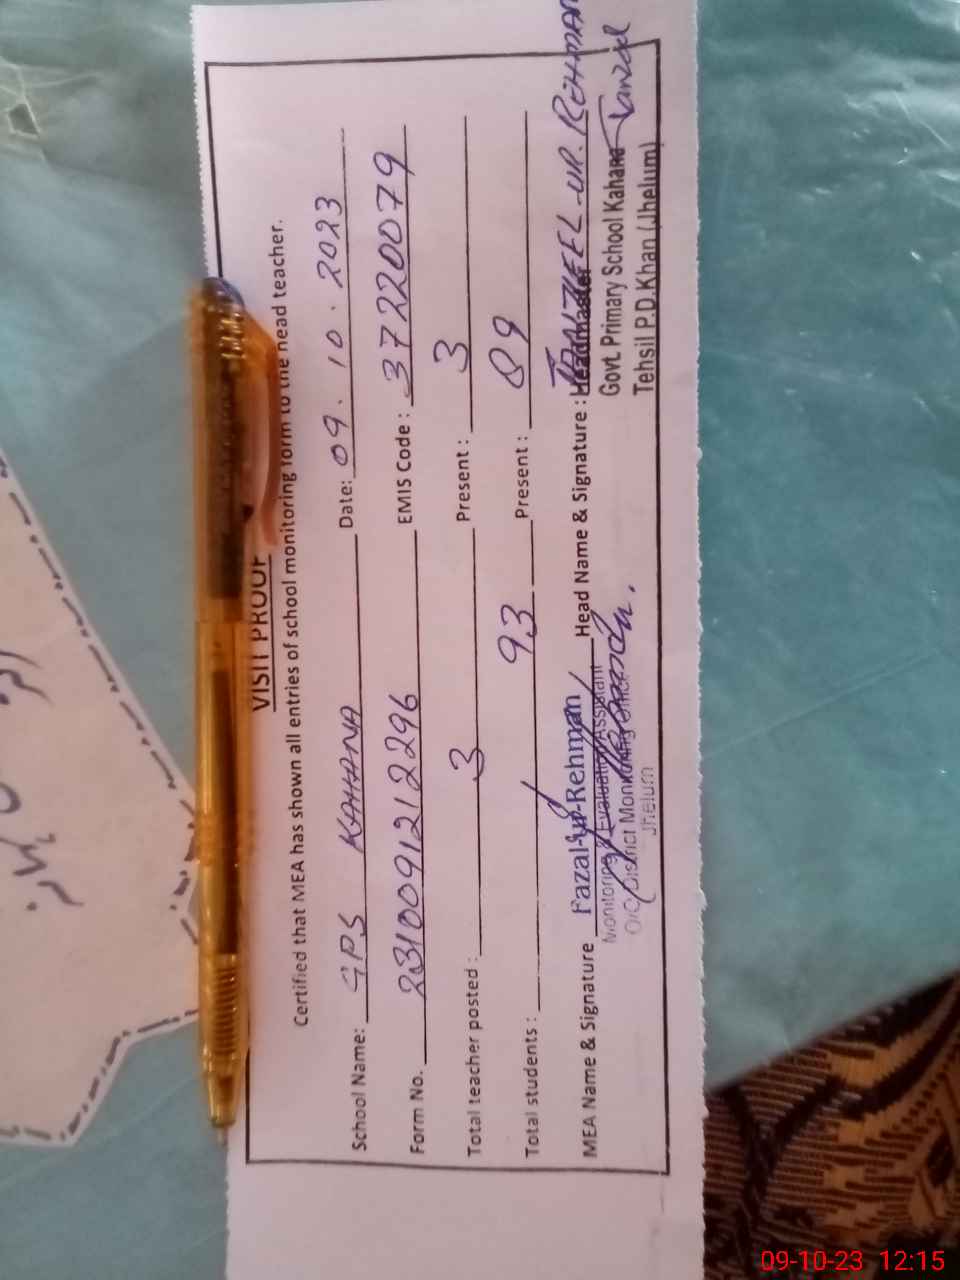 VISIT PROOF
Certified that MEA has shown all entries of school monitoring form to the head teacher.
School Name: GPS KAHANA Date: 09.10.2023
Form No. 231009121 2296 EMIS Code: 37220079
Total teacher posted: 3 Present: 3
Total students: 93 Present: 89
MEA Name & Signature Fazal-ur-Rehman Head Name & Signature: Headmaster TANZEEL-UR-REHMAN
Monitoring & Evaluation Assistant Govt. Primary School Kahana Tanzeel
O/O District Monitoring Officer Tehsil P.D.Khan (Jhelum)
Jhelum
09-10-23 12:15